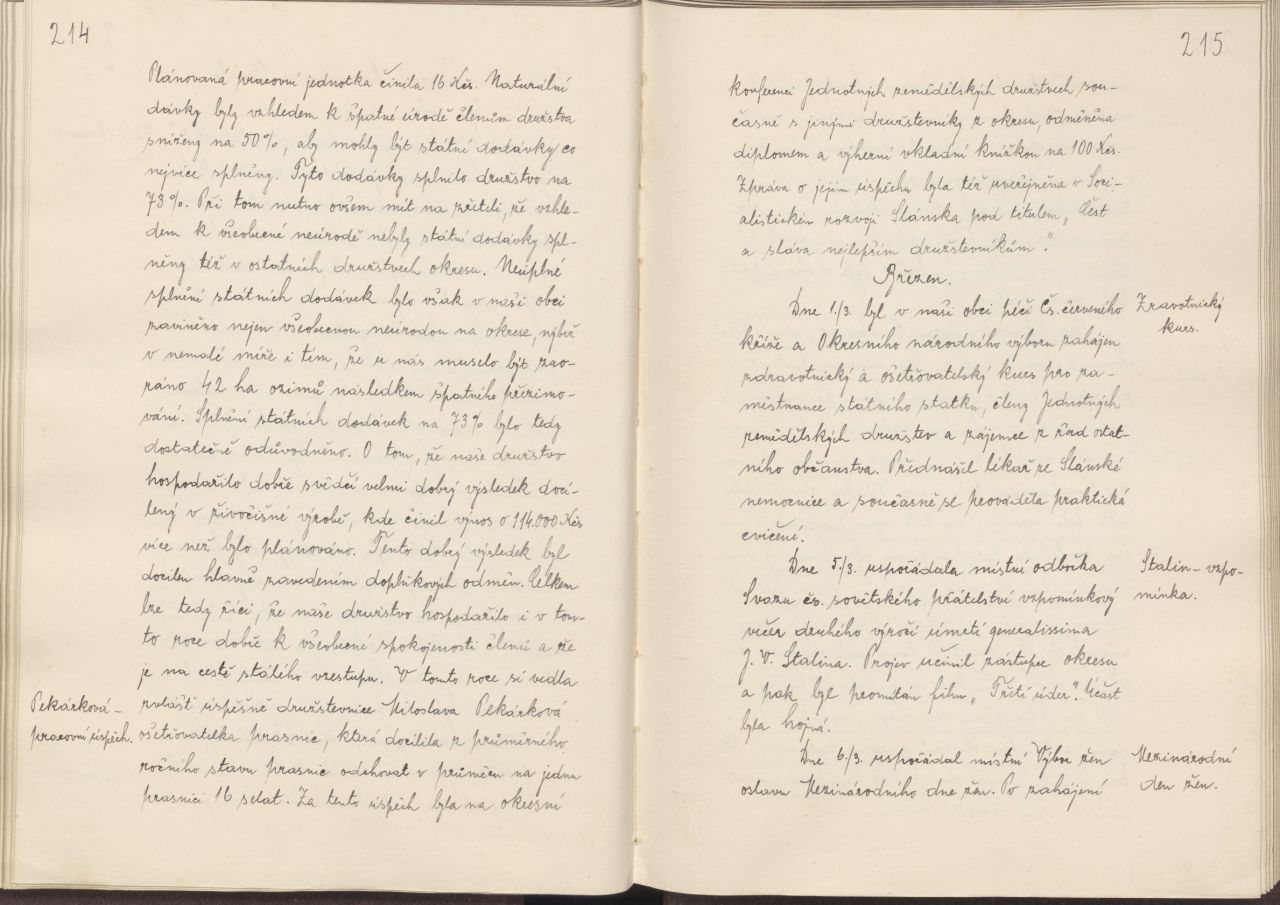 214
Plánovaná pracovní jednotka činila 16 Kčs. Naturální
dávky byly vzhledem k špatné úrodě členům družstva
sníženy na 50%, aby mohly být státní dodávky co
nejvíce splněny. Tyto dodávky splnilo družstvo na
73%. Při tom nutno ovšem mít na zřeteli, že vzhle-
dem k všeobecné neúrodě nebyly státní dodávky spl-
něny též v ostatních družstvech okresu. Neúplné
splnění státních dodávek bylo však v naši obci
zaviněno nejen všeobecnou neúrodou na okrese, nýbrž
v nemalé míře i tím, že u nás muselo být zao-
ráno 42 ha ozimů následkem špatného přezimo-
vání. Splnění státních dodávek na 73% bylo tedy
dostatečně odůvodněno. O tom, že naše družstvo
hospodařilo dobře svědčí velmi dobrý výsledek docí-
lený v živočišné výrobě, kde činil výnos o 114.000 Kčs
více než bylo plánováno. Tento dobrý výsledek byl
docílen hlavně zavedením doplňkových odměn. Celkem
lze tedy říci, že naše družstvo hospodařilo i v tom-
to roce dobře k všeobecné spokojenosti členů a že
je na cestě stálého vzestupu. V tomto roce si vedla
Pekárková -
zvlášť úspěšně družstevnice Miloslava Pekárková
pracovní úspěch.
ošetřovatelka prasnic, která docílila z průměrného
ročního stavu prasnic odchovat v průměru na jednu
prasnici 16 selat. Za tento úspěch byla na okresní
215
konferenci Jednotných zemědělských družstvech sou-
časně s jinými družstevníky z okresu, odměněna
diplomem a výherní vkladní knížkou na 100 Kčs.
Zpráva o jejím úspěchu byla též uveřejněna v Soci-
alistickém rozvoji Slánska pod titulem „Čest
a sláva nejlepším družstevníkům".
Březen.
Dne 1./3. byl v naši obci péčí Čs. červeného
Zravotnický
kříže a Okresního národního výboru zahájen
kurs.
zdravotnický a ošetřovatelský kurs pro za-
městnance státního statku, členy Jednotných
zemědělských družstev a zájemce z řad ostat-
ního občanstva. Přednášel lékař ze Slánské
nemocnice a současně se prováděla praktická
cvičení.
Dne 5./3. uspořádala místní odbočka
Stalin - vzpo-
Svazu čs. sovětského přátelství vzpomínkový
mínka.
večer druhého výročí úmrtí generalissima
J. V. Stalina. Projev učinil zástupce okresu
a pak byl promítán film „Třetí úder". Účast
byla hojná.
Dne 6./3. uspořádal místní Výbor žen
Mezinárodní
oslavu Mezinárodního dne žen. Po zahájení
den žen.